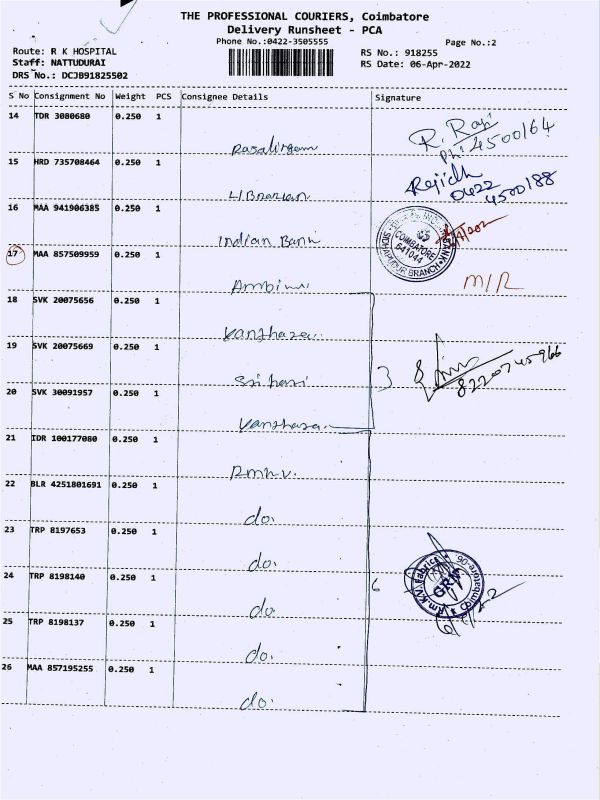 THE PROFESSIONAL COURIERS, Coimbatore
Delivery Runsheet - PCA
Phone No.:0422-3505555
Page No.:2
Route: R K HOSPITAL
RS No.: 918255
Staff: NATTUDURAI
RS Date: 06-Apr-2022
DRS No.: DCJB91825502
S No Consignment No Weight PCS Consignee Details Signature
14 TDR 3080680 0.250 1
R. Raji
Ph: 4500164
Rasalingam
15 HRD 735708464 0.250 1
Rejidh
0422
4500188
Librarian
16 MAA 941906385 0.250 1
Indian Bank
COIMBATORE
641044
BRANCH
17 MAA 857509959 0.250 1
M/R
18 SVK 20075656 0.250 1
19 SVK 20075669 0.250 1
Sri hari
3
20 SVK 30091957 0.250 1
21 IDR 100177080 0.250 1
22 BLR 4251801691 0.250 1
do.
23 TRP 8197653 0.250 1
do.
24 TRP 8198140 0.250 1
6
GRM
do
25 TRP 8198137 0.250 1
do.
26 MAA 857195255 0.250 1
do.